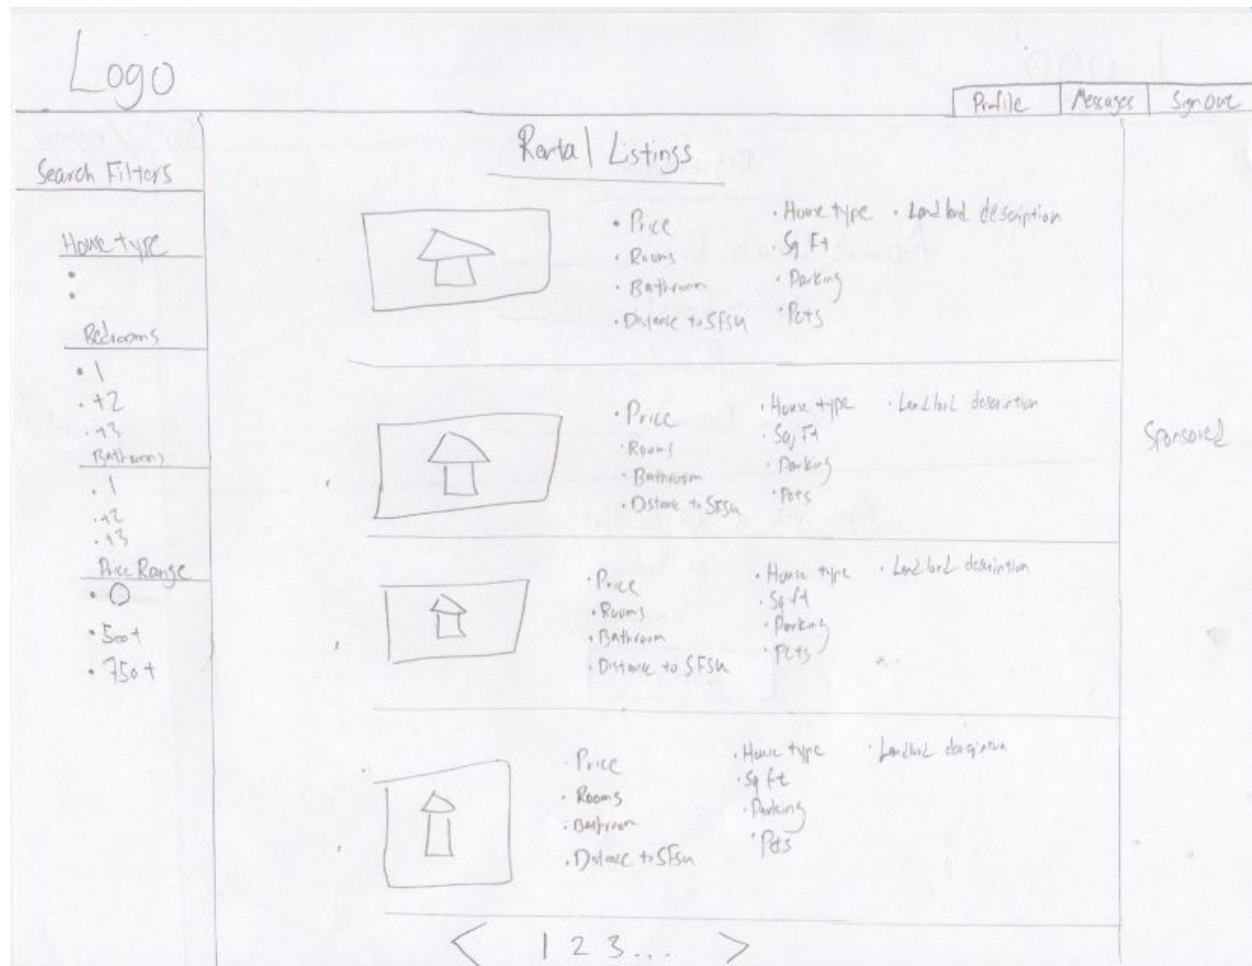 Logo
Profile Messages Sign Out
Search Filters
House type
Bedrooms
• 1
• +2
• +3
Bathrooms
• 1
• +2
• +3
Price Range
• 0
• 500+
• 750+
Rental Listings
• Price
• Rooms
• Bathroom
• Distance to SFSU
• House type
• Sq Ft
• Parking
• Pets
• Landlord description
• Price
• Rooms
• Bathroom
• Distance to SFSU
• House type
• Sq Ft
• Parking
• Pets
• Landlord description
• Price
• Rooms
• Bathroom
• Distance to SFSU
• House type
• Sq ft
• Parking
• Pets
• Landlord description
• Price
• Rooms
• Bathroom
• Distance to SFSU
• House type
• Sq ft
• Parking
• Pets
• Landlord description
Sponsored
< 1 2 3 ... >